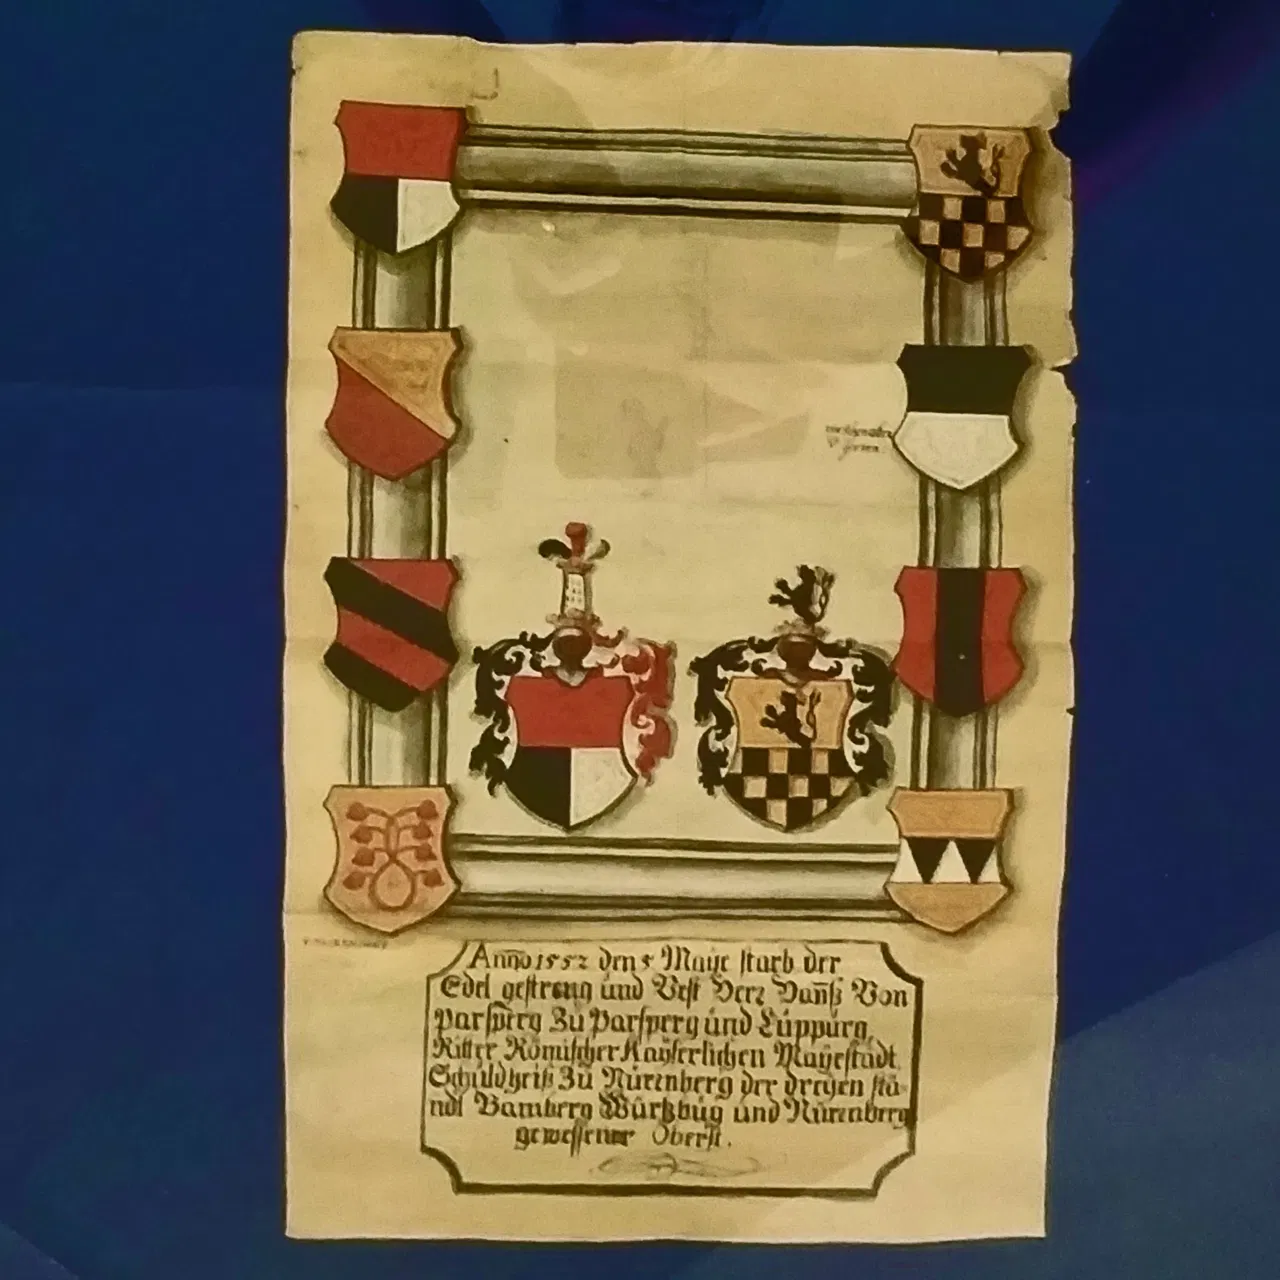 Anno 1552 den 5 Maÿe starb der
Edel gestreng und Vest Herr Hanß Von
Parsperg Zu Parsperg und Lüppürg,
Ritter Römischer Kaÿserlichen Maÿestädt
Schüldheiß Zü Nürenberg der dreÿen stä-
ndt Bamberg Würtzbüg und Nürenberg
gewessener Oberst.